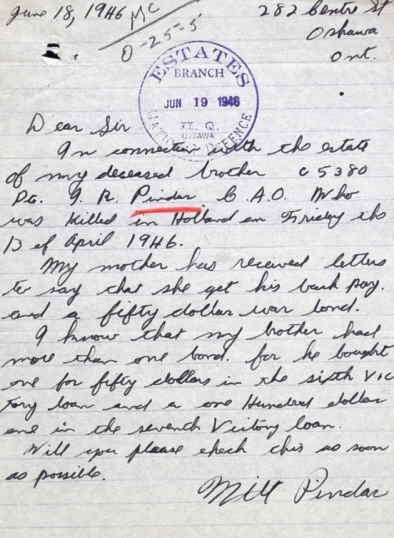 June 18, 1946
MC
282 Centre St
0-25-5
Oshawa
Ont.
ESTATES
BRANCH
JUN 19 1946
H. Q.
OTTAWA
DEFENCE
Dear Sir
In connection with the estate
of my deceased brother C 5380
Pte. G. R. Pindar. C.A.O. Who
was killed in Holland on Friday the
13 of April 1946.
My mother has received letters
to say that she get his back pay.
and a fifty dollar war bond.
I know that my brother had
more than one bond. for he bought
one for fifty dollars in the sixth Vic
tory loan and a one Hundred dollar
one in the seventh Victory loan.
Will you please check this as soon
as possible.
Milt Pindar